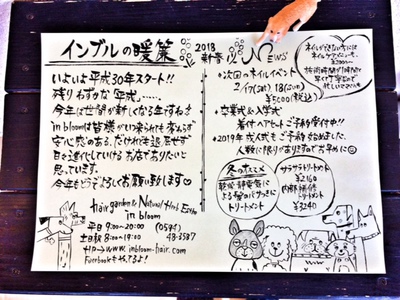 インブルの暖簾
2018
新春
News
いよいよ平成30年スタート!!
残りわずかな「平成」……
今年は世間が新しくなる年ですね♪
in bloomは皆様がいつ来られても変わらず
安心感のある、だけれども退屈せず
日々進化していけるお店でありたいと
思っています。
今年もどうぞよろしくお願い致します♡
hair garden & Natural Herb Esthe
in bloom
平日 9:00~20:00 (0594)
土日祝 8:00~19:00 48-3587
www.inbloom-hair.com
Facebookもやってるよ!
*次回のネイルイベント
2/17(土) 18(日)
¥5000(税込)
*卒業式&入学式
着付ヘアセットご予約受付中!!
*2019年成人式もご予約始めました。
人数に限りがありますのでお早めに
冬のオススメ
乾燥、静電気に
よる髪のパサつきに
トリートメント
サラサラトリートメント
¥2160
内部補修
トリートメント
¥3240